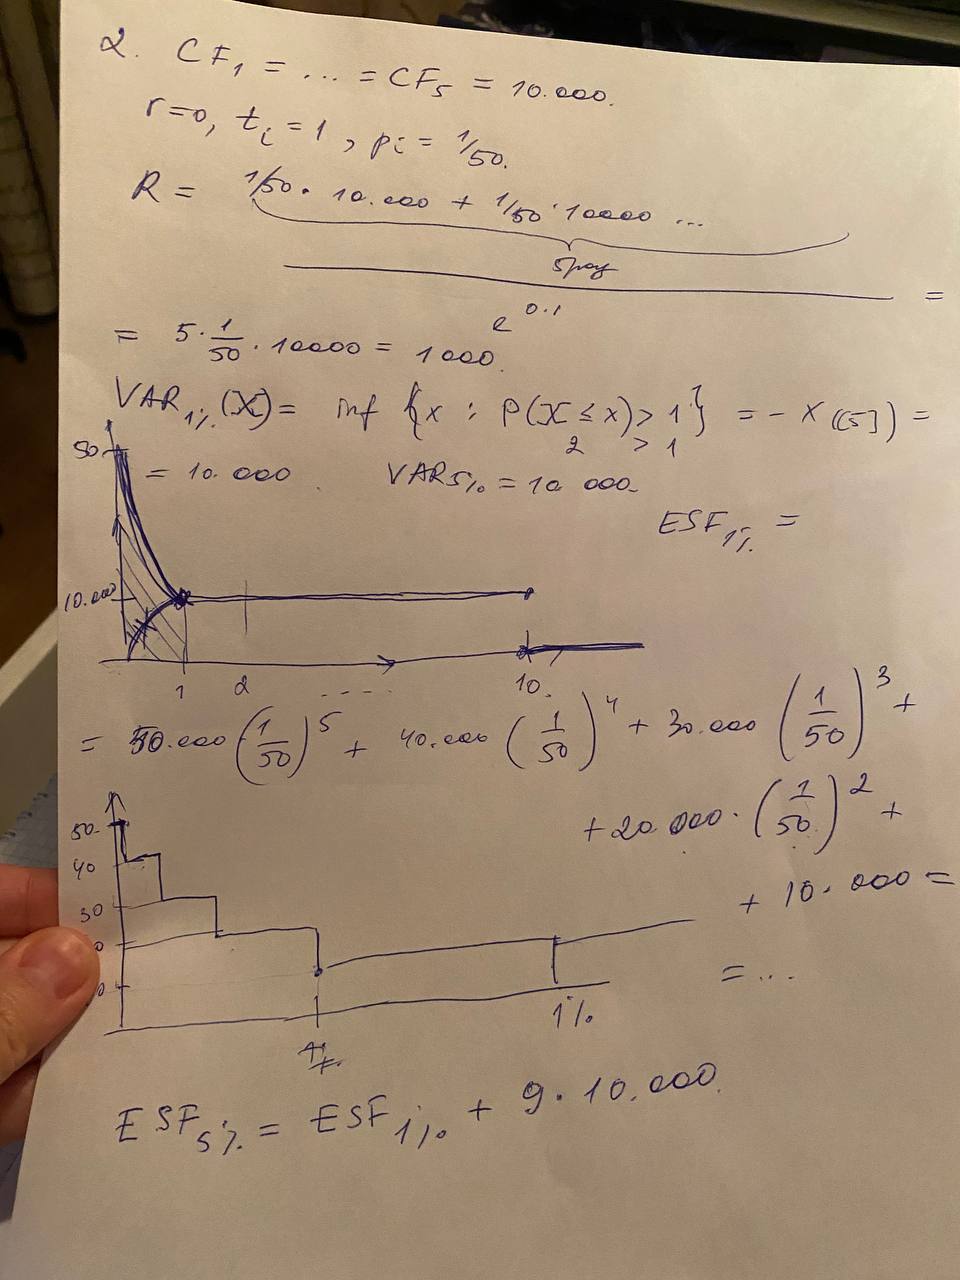 2. CF₁ = ... = CF₅ = 10.000.
r=0, tᵢ = 1, pᵢ = 1/50.
R = 1/50 · 10.000 + 1/50 · 10000 ...
5 раз
e^0.1 =
= 5 · 1/50 · 10000 = 1000.
VAR₁%(X) = inf {x : P(X ≤ x) > 1} = - X([5]) =
2 > 1
50
= 10.000. VAR5% = 10 000
ESF₁% =
10.000
1 2 .... 10.
= 50.000 (1/50)⁵ + 40.000 (1/50)⁴ + 30.000 (1/50)³ +
+ 20 000 · (1/50)² +
+ 10.000 =
= ...
50
40
30
1%
ESF₅% = ESF₁% + 9 · 10.000